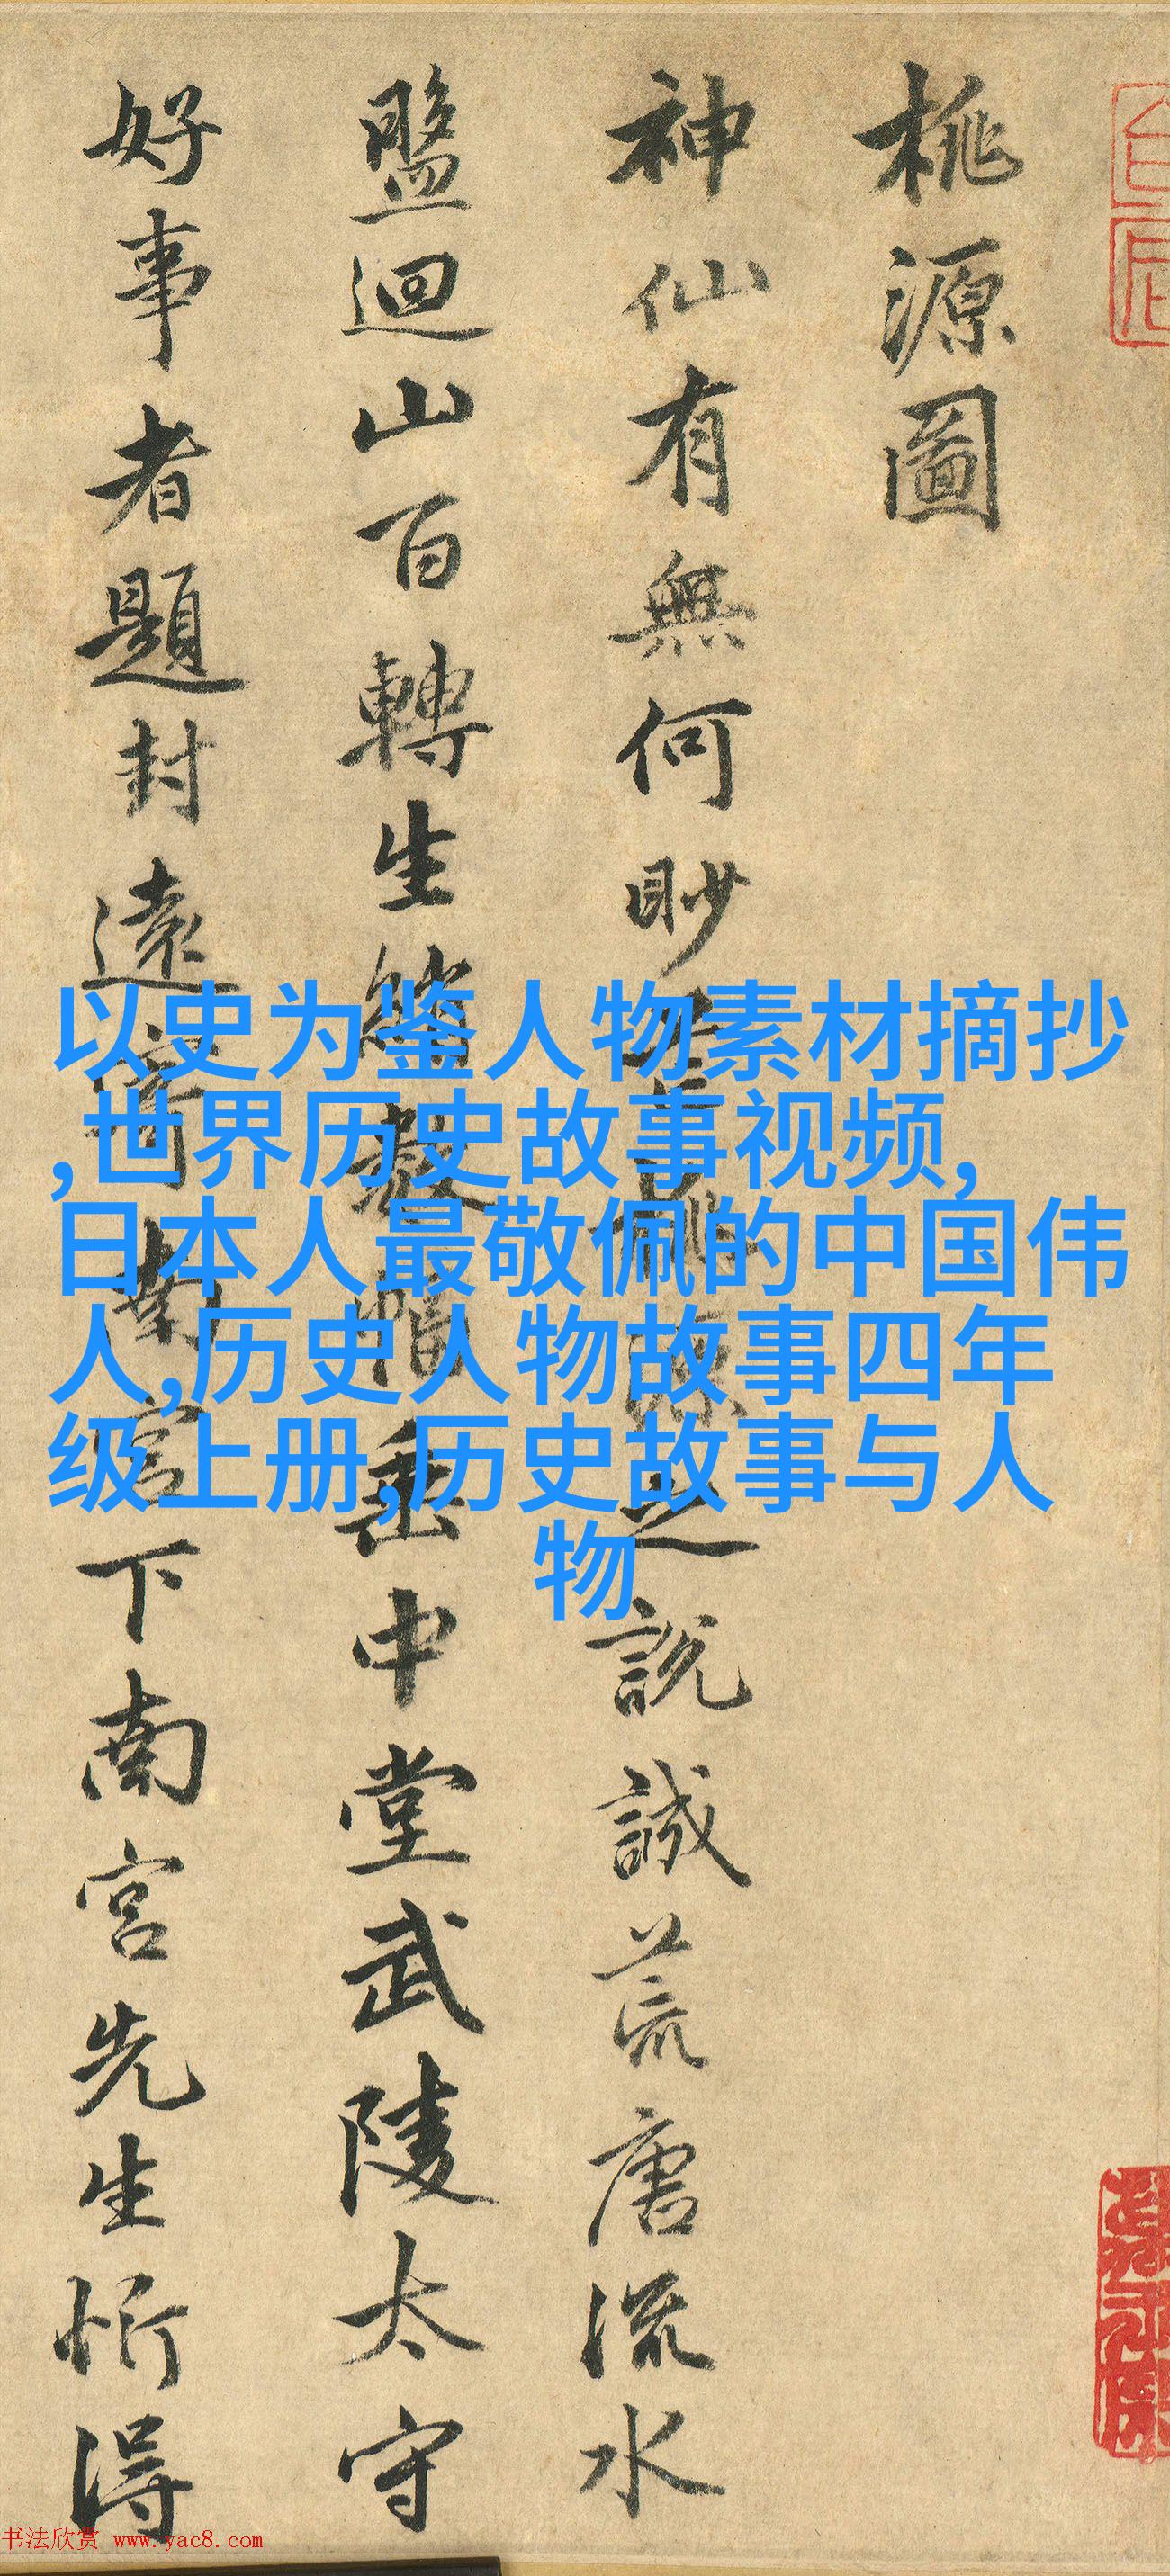 桃源圖
神仙有無何眇桃源之說誠荒唐流水
盤迴山百轉生綃數幅垂中堂武陵太守
好事者題封遠寄南宮下南宮先生忻得
以史为鉴人物素材摘抄
,世界历史故事视频,
日本人最敬佩的中国伟
人,历史人物故事四年
级上册,历史故事与人
物
书法欣赏 www.yac8.com